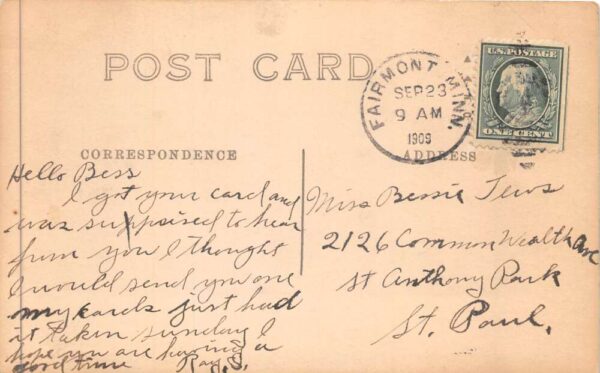 POST CARD
FAIRMONT MINN.
SEP 23
9 AM
1909
U.S. POSTAGE
ONE CENT
CORRESPONDENCE
ADDRESS
Hello Bess
I got your card and
was suppised to hear
from you I thought
I would send you one
my cards just had
it taken sunday I
hope you are having a
good time Ray S.
Miss Bessie Tews
2126 Common Wealth Ave
St Anthony Park
St. Paul.